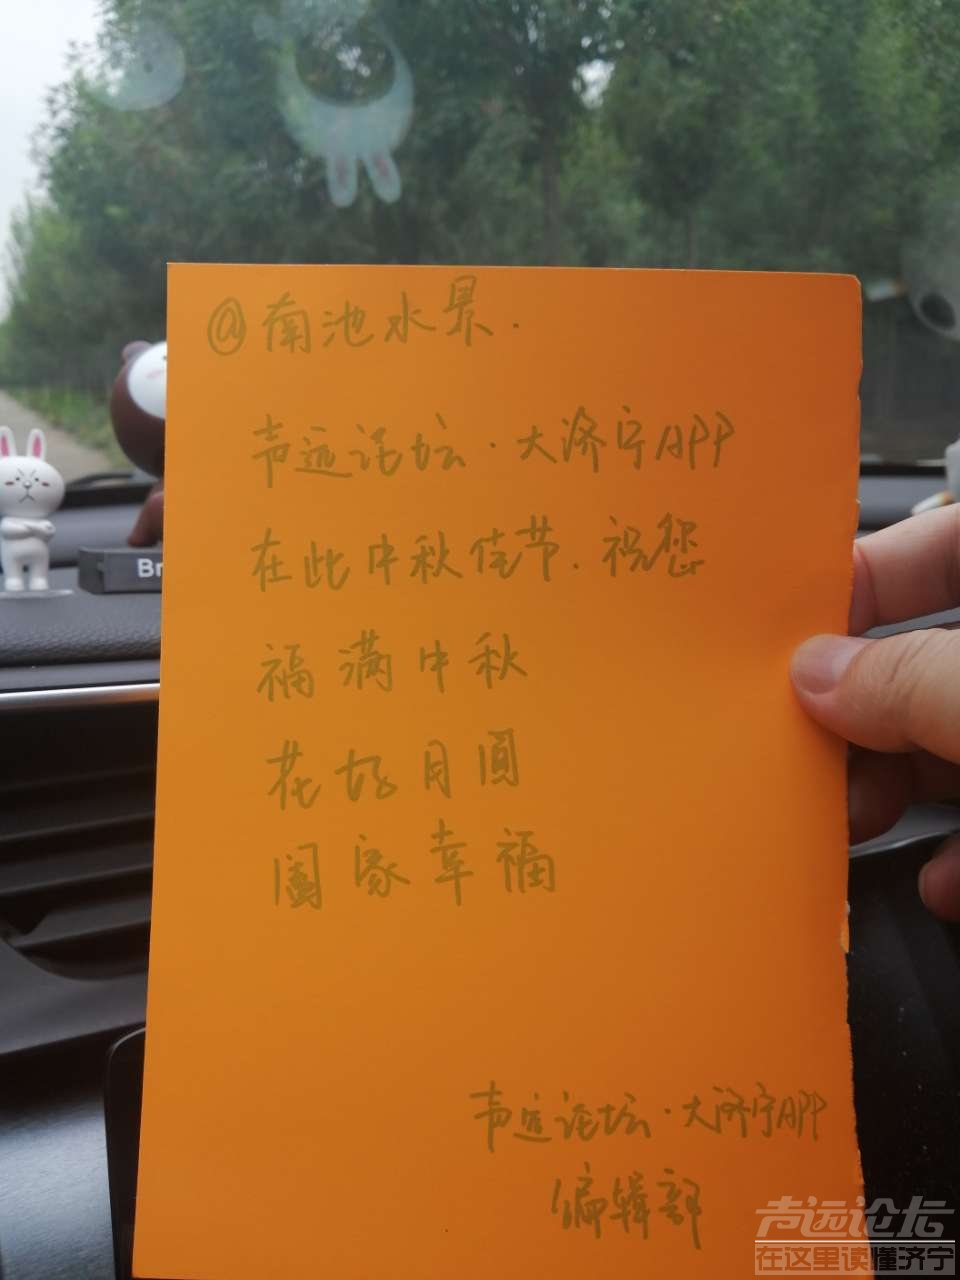 @南池水景.
声远论坛·大济宁APP
在此中秋佳节.祝您
福满中秋
花好月圆
阖家幸福
声远论坛·大济宁APP
编辑部
Br
声远论坛
在这里读懂济宁